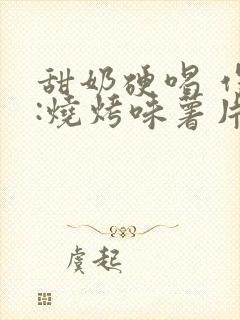 甜奶硬唱
:燒烤味薯片
虞起